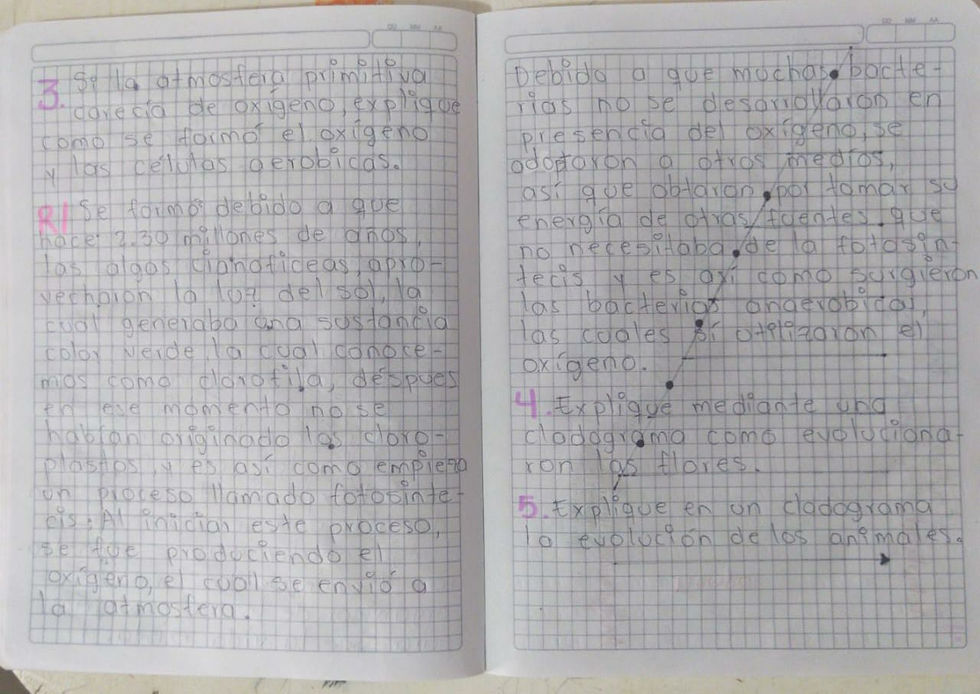 3. Si la atmosfera primitiva
carecia de oxígeno, explique
como se formó el oxígeno
y las células aerobicas.
R/ Se formó debido a que
hace 2.30 millones de años,
las algas cianoficeas, apro-
vecharon la luz del sol, la
cual generaba una sustancia
color verde, la cual conoce-
mos como clorofila, despues
en ese momento no se
habían originado los cloro-
plastos, y es así como empieza
un proceso llamado fotosinte-
cis. Al iniciar este proceso,
se fue produciendo el
oxígeno, el cual se envió a
la atmosfera.
Debido a que muchas bacte-
rias no se desarrollaron en
presencia del oxígeno, se
adoptaron a otros medios,
así que obtaron por tomar su
energía de otras fuentes que
no necesitaba de la fotosín-
tecis y es así como surgieron
las bacterias anaerobicas,
las cuales sí utilizaron el
oxígeno.
4. Explique mediante una
cladograma como evoluciona-
ron las flores.
5. Explique en un cladograma
la evolución de los animales.